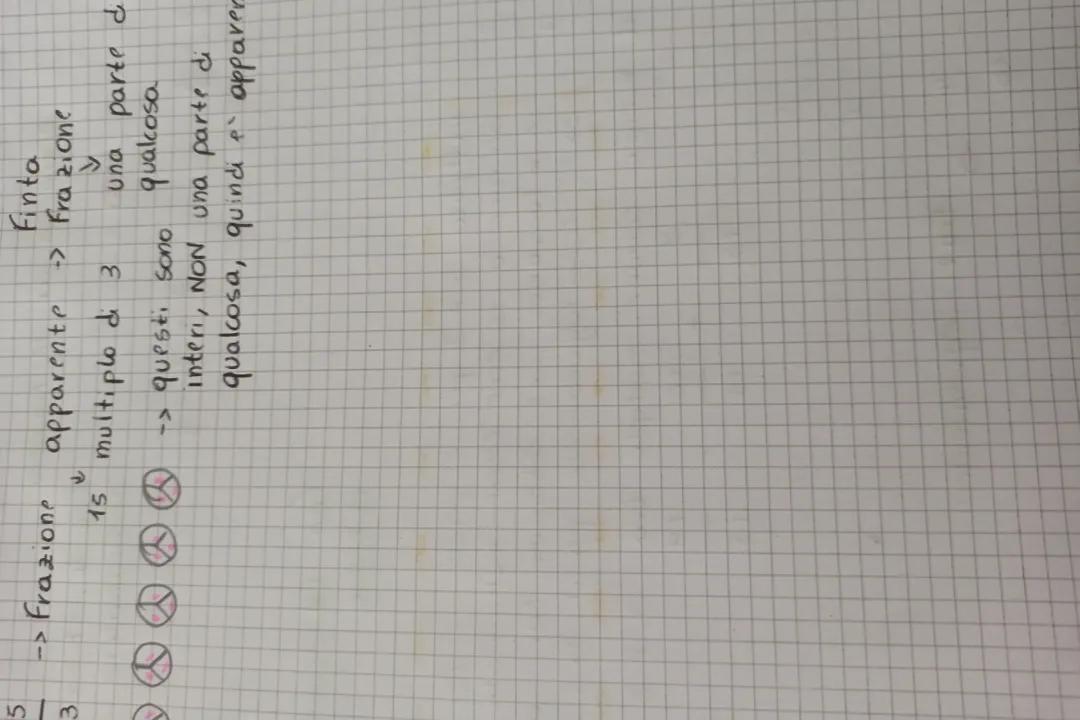 Finta
5/3 -> Frazione apparente -> Frazione
15 multiplo di 3 una parte d
-> questi sono qualcosa
interi, NON una parte di
qualcosa, quindi è apparen